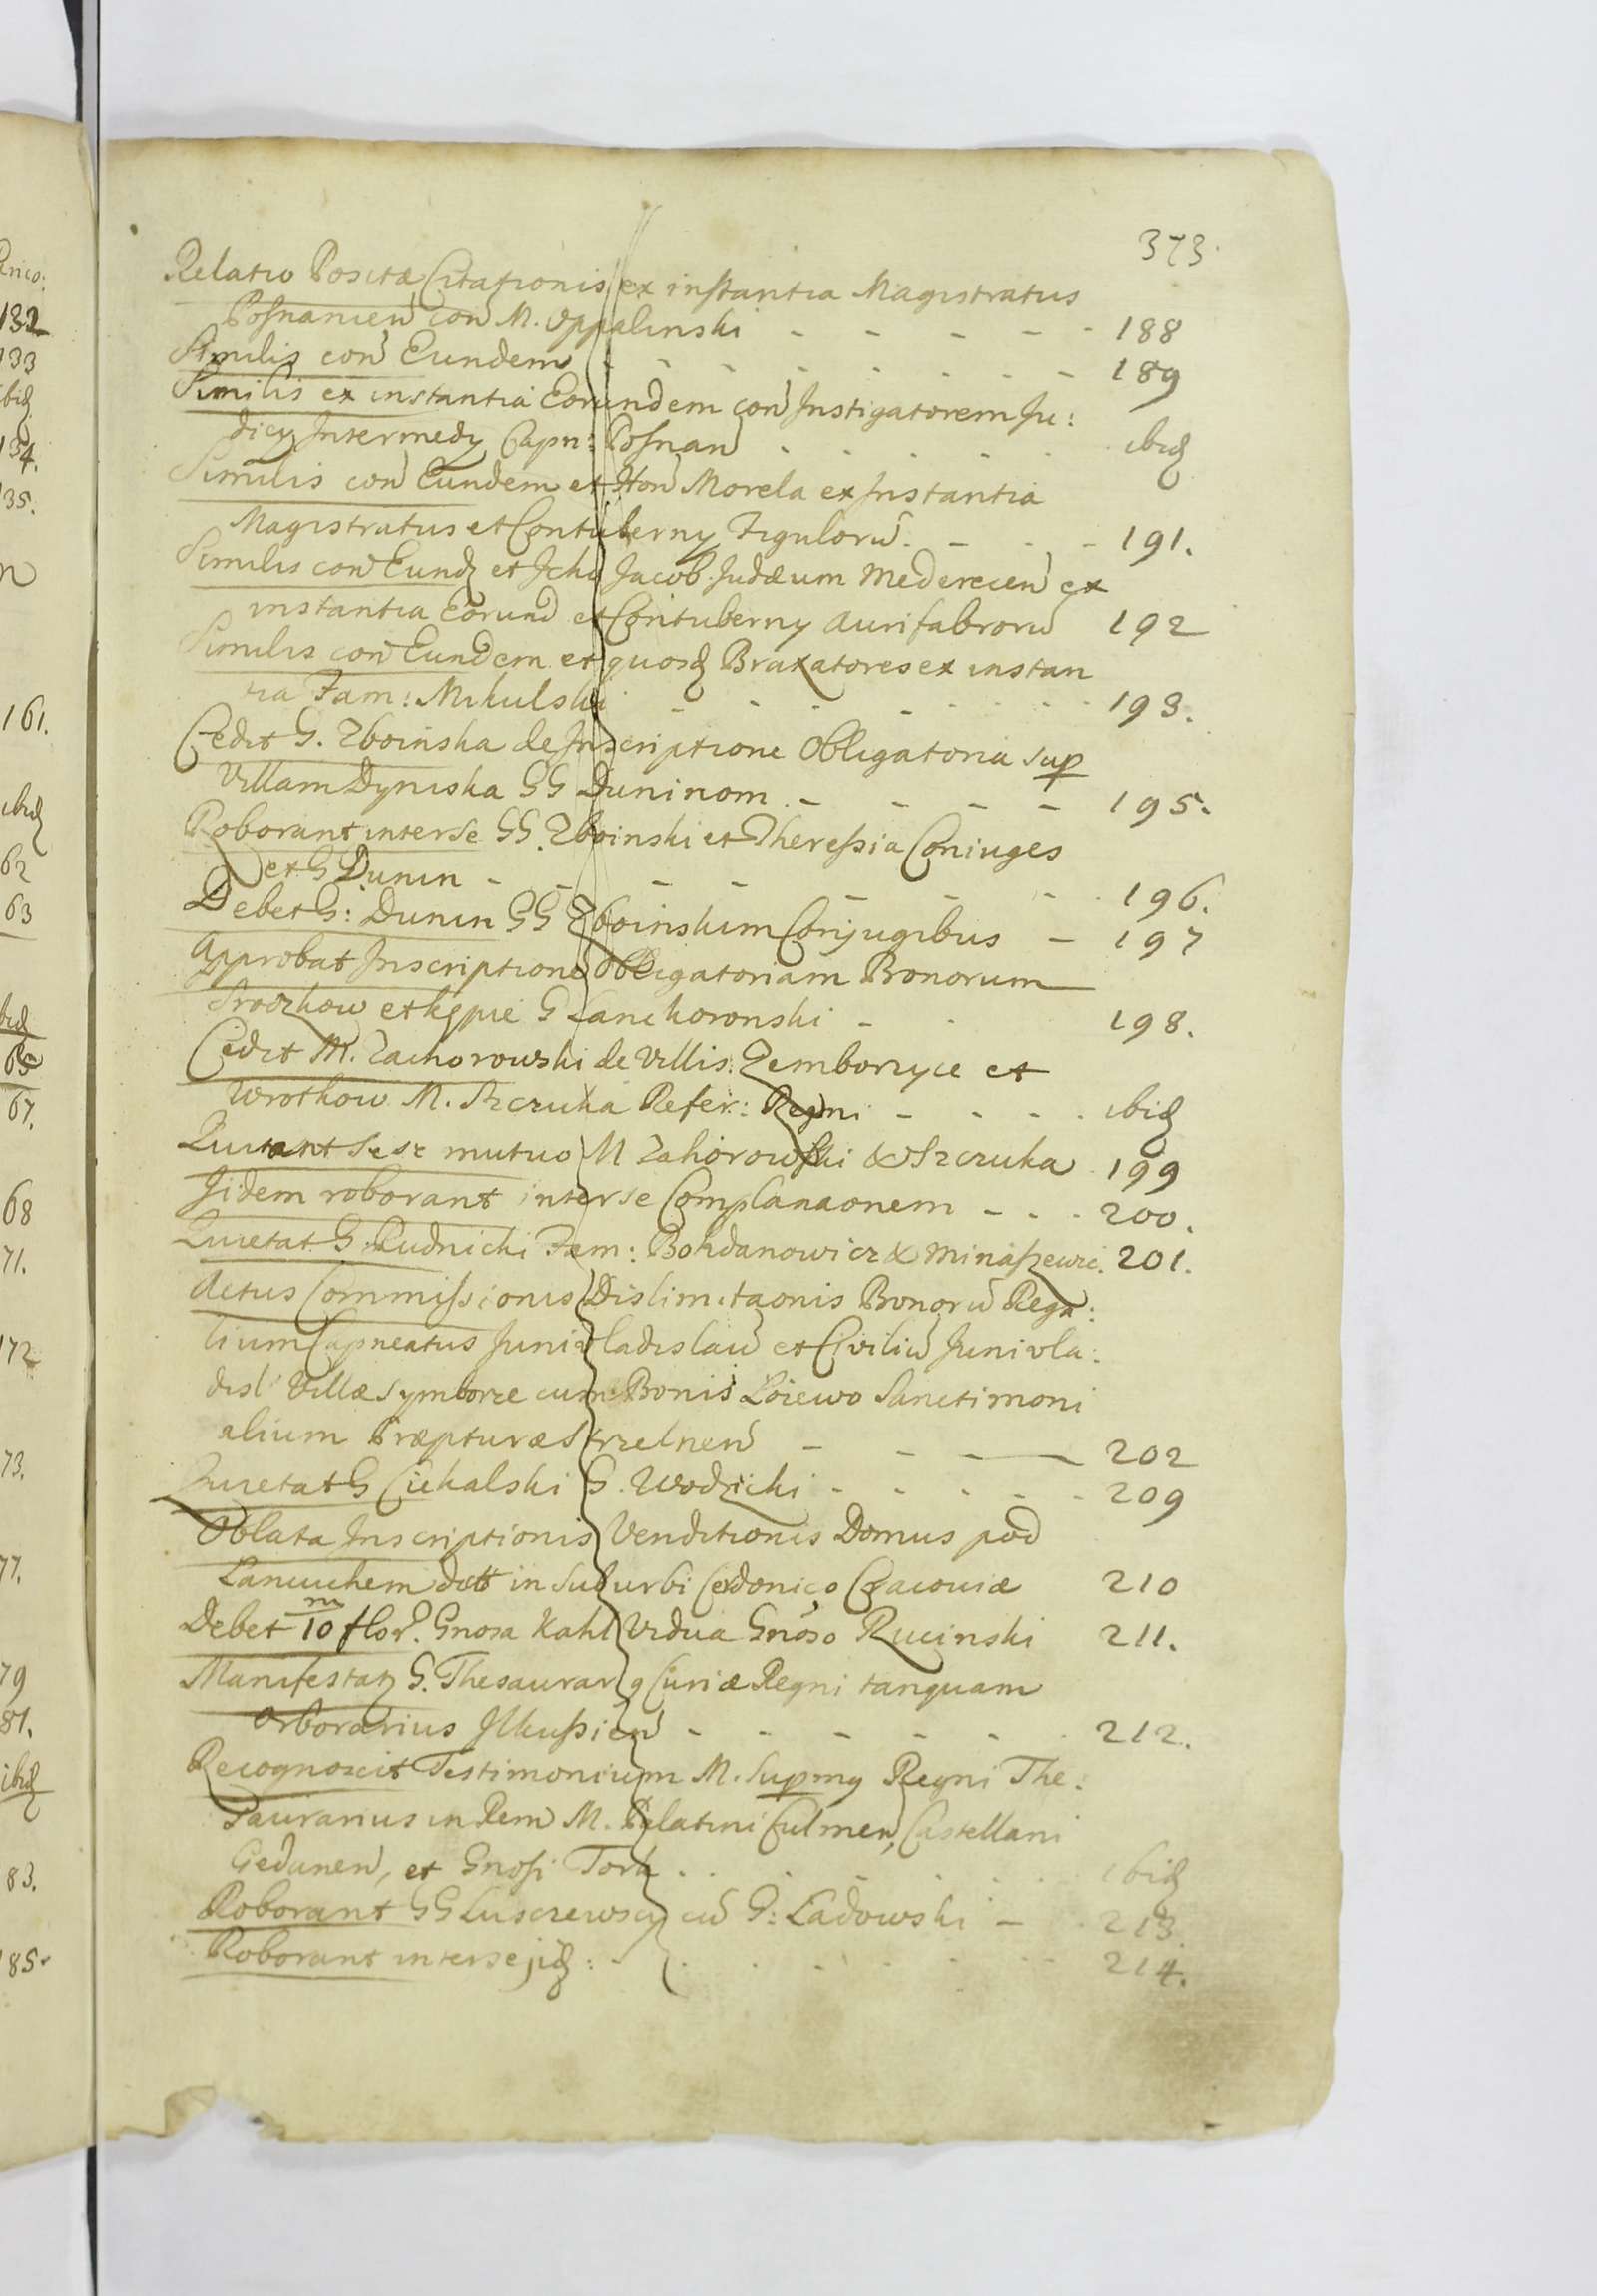 373.
Relatio Positæ Citationis ex instantia Magistratus
Posnanien con M. Oppalinski - - - - - 188
Similis con Eundem - - - - - - - 189
Similis ex instantia Eorundem con Instigatorem Ju:
dicy Intermedy Capn: Posnan - - - - - ibid
Similis con Eundem et Hon Morela ex Instantia
Magistratus et Contuberny Figuloru. - - - 191.
Similis con Eund et Jcho Jacob Judæum Mederecen ex
instantia Eorund et Contuberny Aurifabroru 192
Similis con Eundem et quosd Braxatores ex instan
tia Fam: Mikulski - - - - - - - 193.
Cedit G. Zboinska de Inscriptione Obligatoria sup
Villam Dyniska GG Duninom. - - - - 195.
Roborant inter se GG. Zboinski et Theressia Coniuges
et G Dunin - - - - - - - 196.
Debet G: Dunin GG Zboinskim Conjugibus - 197
Approbat Inscriptione Obligatoriam Bonorum
Sroczkow et Kępie G Lanckoronski - - 198.
Cedit M. Zachorowski de Villis Zemborzyce et
Wrotkow M. Szczuka Refer: Regni - - - - ibid
Quitant sese mutuo M Zahorowski & Szczuka 199
Jidem roborant inter se Complanaonem - - - 200.
Quietat G Rudnicki Fam: Bohdanowicz & Minaszewic. 201.
Actus Commissionis Dislimitaonis Bonoru Rega:
lium Capneatus Junivladislau et Civiliu Junivla:
disl Villæ Symborze cum Bonis Loiewo Sanctimoni
alium Præpturæ Strzelnen - - - 202
Quietat G Ciekalski G. Wodzicki - - - - - 209
Oblata Inscriptionis Venditionis Domus pod
Lancuchem dict in Suburbi Cerdonico Cracoviæ 210
Debet 10 m flor. Gnosa Kahl Vidua Gnoso Rucinski 211.
Manifestat G. Thesaurar g Curiæ Regni tanquam
Orborarius Ilkussien - - - - - - 212.
Recognoscit Testimonium M. Supmg Regni The:
saurarius in Rem M. Palatini Culmen, Castellani
Gedanen, et Gnosi Tork - - - - - ibid
Roborant GG Lusczewscy cu G: Ladowski - 213.
Roborant inter se jid: - - - - - 214.
Arico:
132
133
ibid
134.
135.
161.
ibid
62
63
ibid
65
67.
68
71.
172
73.
77.
79
81.
ibid
83.
185.